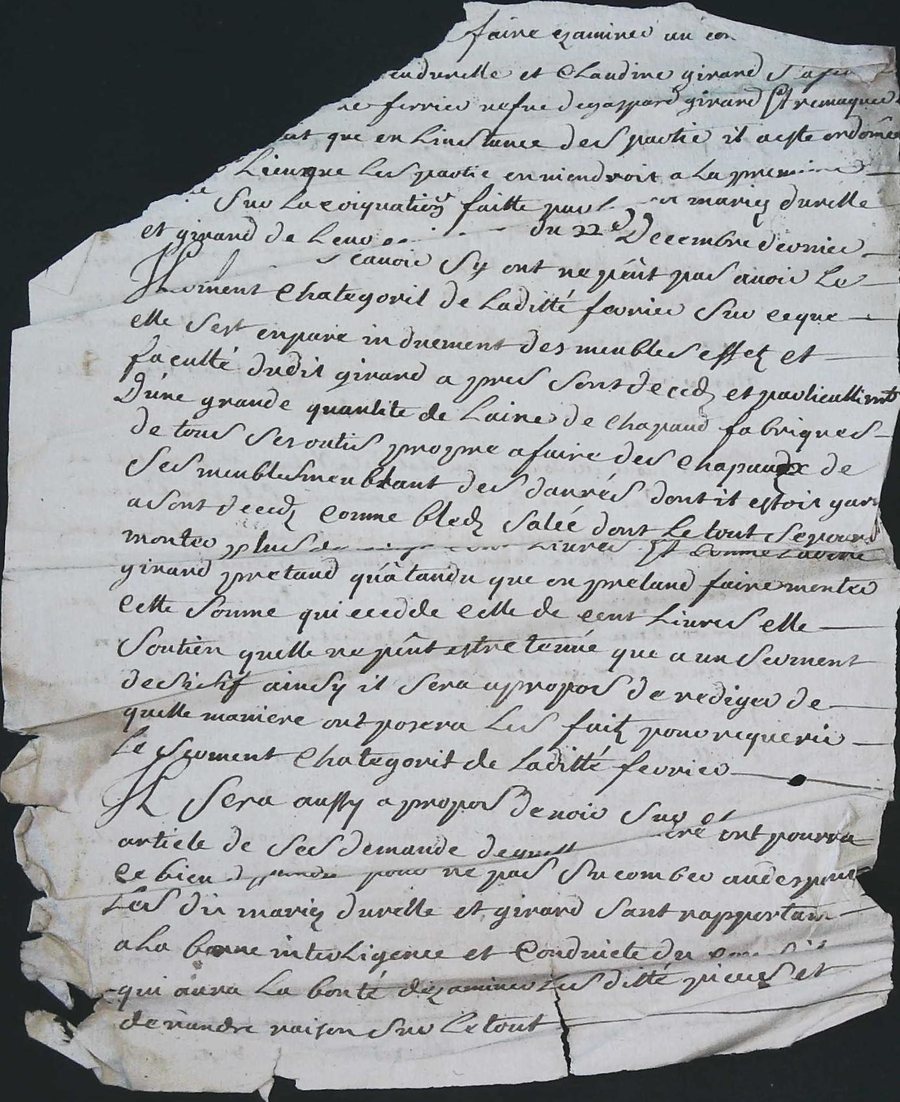 faire examiner un con
durelle et Claudine girard
ferrier vefue de gaspard girard Et remarquer
que en Linstance des partie il a este ordonée
Lieu que Les partie en viendroit a La premiere
Sur La faitte par mariez durelle
et girard de Leur du 22e Decembre dernier
Scavoir Sy ont ne pêut pas avoir Le
Serment Chategoril de Laditté ferrier Sur ce que
elle Sest enparé induement des meubles effetz et
faculté dudit girard a pres Sont decedz et particullierment
D'une grande quantite de Laine de Chapaud fabriques
de tous Ses outis propre a faire des Chapaudx de
Ses meubles meublant des danrés dont il estoit garny
a Sont decedz Comme bledz Salée dont Le tout Se pourra
monter plus de Livres Et Comme Laditte
girard pretand qu'âtandu que on pretand faire monter
Cette Somme qui ecedde Celle de Cent Livres elle
Soutien quelle ne pêut estre tenüe que a un Serment
ainsy il Sera apropos de rediger de
quelle maniere ont posera Les faitz pour requerir
Le Serment Chategoril de Laditté ferrier
Il Sera aussy apropos de voir Sur
article de Ses demande ont pourra
Ce bien pour ne pas Sucomber au despens
Les dis mariez durelle et girard Sant rapportant
a La bonne intelligence et Conduicte du
qui aura La bonté dexaminer Les ditté pieces et
de randre raison Sur Le tout